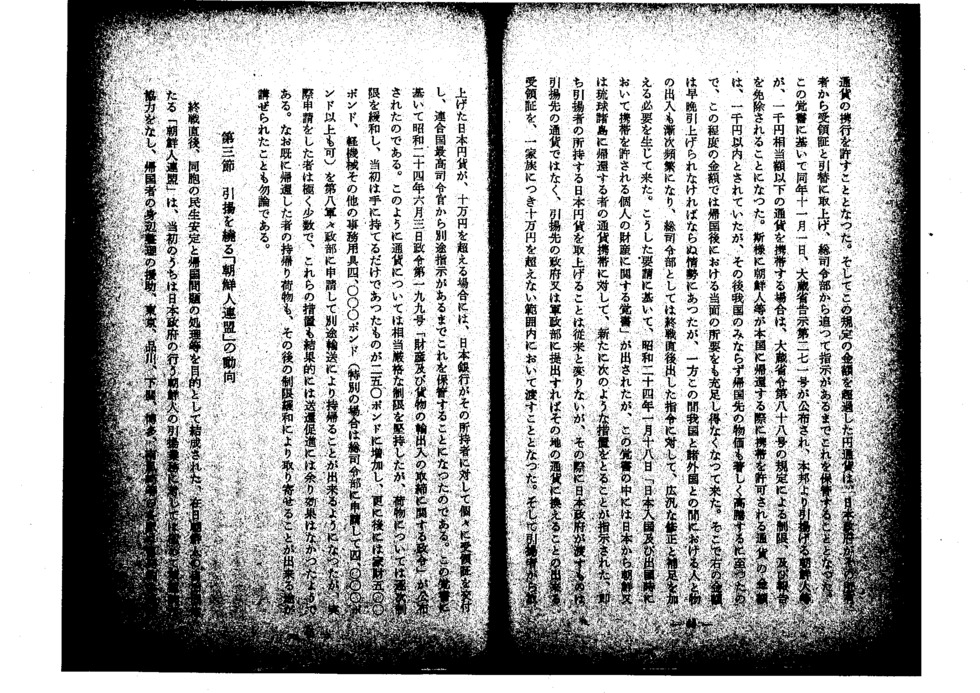 通貨の携行を許すこととなつた。そしてこの規定の金額を超過した円通貨は、日本政府が
者から受領証と引替に取上げ、総司令部から追つて指示があるまでこれを保管することとなつた。
この覚書に基いて同年十一月一日、大蔵省告示第二七一号が公布され、本邦より引揚げる朝鮮人等
が、一千円相当額以下の通貨を携帯する場合は、大蔵省令第八十八号の規定による制限、及び報告
を免除されることになつた。斯様に朝鮮人等が本国に帰還する際に携帯を許可される通貨の金額
は、一千円以内とされていたが、その後我国のみならず帰国先の物価も著しく高騰するに至つたの
で、この程度の金額では帰国後における当面の所要をも充足し得なくなつて来た。そこで右の金額
は早晩引上げられなければならぬ情勢にあつたが、一方この間我国と諸外国との間における人と物
の出入も漸次頻繁になり、総司令部としては終戦直後出した指令に対して、広汎な修正と補足を加
える必要を生じて来た。こうした要請に基いて、昭和二十四年一月十八日「日本入国及び出国時に
おいて携帯を許される個人の財産に関する覚書」が出されたが、この覚書の中には日本から朝鮮又
は琉球諸島に帰還する者の通貨携帯に対して、新たに次のような措置をとることが指示された。即
ち引揚者の所持する日本円貨を取上げることは従来と変りないが、その際に日本政府が渡すものは
引揚先の通貨ではなく、引揚先の政府又は軍政部に提出すればその地の通貨に換えることの出来る
受領証を、一家族につき十万円を超えない範囲内において渡すこととなつた。そして引揚者から取
上げた日本円貨が、十万円を超える場合には、日本銀行がその所持者に対して個々に受領証を交付
し、連合国最高司令官から別途指示があるまでこれを保管することになつたのである。この覚書に
基いて昭和二十四年六月三日政令第一九九号「財産及び貨物の輸出入の取締に関する政令」が公布
されたのである。このように通貨については相当厳格な制限を堅持したが、荷物については逐次制
限を緩和し、当初は手に持てるだけであつたものが二五〇ポンドに増加し、更に後には家財五〇〇
ポンド、軽機械その他の事務用具四、〇〇〇ポンド（特別の場合は総司令部に申請して四、〇〇〇ポ
ンド以上も可）を第八軍々政部に申請して別途輸送により持帰ることが出来るようになつたが、実
際申請をした者は極く少数で、これらの措置も結果的には送還促進には余り効果はなかつたようで
ある。なお既に帰還した者の持帰り荷物も、その後の制限緩和により取り寄せることが出来る途が
講ぜられたことも勿論である。
第三節　引揚を繞る「朝鮮人連盟」の動向
終戦直後、同胞の民生安定と帰国問題の処理等を目的として結成された、在日朝鮮人の
たる「朝鮮人連盟」は、当初のうちは日本政府の行う朝鮮人の引揚業務に対しては
協力をなし、帰国者の身辺整理の援助、東京、品川、下関、博多、